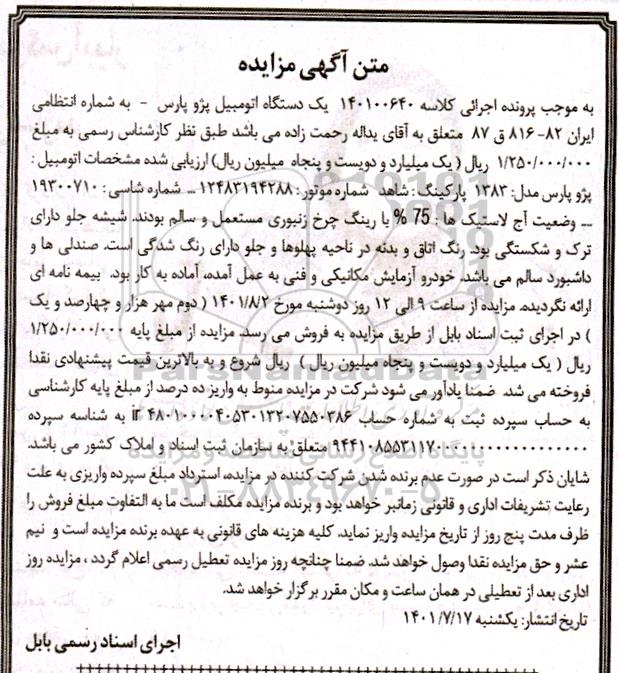 متن آگهی مزایده
به موجب پرونده اجرائی کلاسه ۱۴۰۱۰۰۶۴۰ یک دستگاه اتومبیل پژو پارس - به شماره انتظامی
ایران ۸۲-۸۱۶ ق ۸۷ متعلق به آقای یداله رحمت زاده می باشد طبق نظر کارشناس رسمی به مبلغ
۱/۲۵۰/۰۰۰/۰۰۰ ریال ( یک میلیارد و دویست و پنجاه میلیون ریال) ارزیابی شده مشخصات اتومبیل :
پژو پارس مدل: ۱۳۸۳ پارکینگ : شاهد شماره موتور : ۱۲۴۸۳۱۹۴۲۸۸ ـــ شماره شاسی : ۱۹۳۰۰۷۱۰
ـــ وضعیت آج لاستیک ها : 75 % با رینگ چرخ زنبوری مستعمل و سالم بودند. شیشه جلو دارای
ترک و شکستگی بود. رنگ اتاق و بدنه در ناحیه پهلوها و جلو دارای رنگ شدگی است. صندلی ها و
داشبورد سالم می باشد. خودرو آزمایش مکانیکی و فنی به عمل آمده، آماده به کار بود. بیمه نامه ای
ارائه نگردیده. مزایده از ساعت ۹ الی ۱۲ روز دوشنبه مورخ ۱۴۰۱/۸/۲ ( دوم مهر هزار و چهارصد و یک
) در اجرای ثبت اسناد بابل از طریق مزایده به فروش می رسد. مزایده از مبلغ پایه ۱/۲۵۰/۰۰۰/۰۰۰
ریال ( یک میلیارد و دویست و پنجاه میلیون ریال ) ریال شروع و به بالاترین قیمت پیشنهادی نقدا
فروخته می شد. ضمنا یادآور می شود شرکت در مزایده منوط به واریز ده درصد از مبلغ پایه کارشناسی
به حساب سپرده ثبت به شماره حساب ir ۴۸۰۱۰۰۰۰۴۰۵۳۰۱۳۲۰۷۵۵۰۳۸۶ به شناسه سپرده
۹۴۴۱۰۸۵۵۳۱۱۷۰۰۰۰۰۰۰۰۰۰۰۰۰۰۰۰۰۰ متعلق به سازمان ثبت اسناد و املاک کشور می باشد.
شایان ذکر است در صورت عدم برنده شدن شرکت کننده در مزایده، استرداد مبلغ سپرده واریزی به علت
رعایت تشریفات اداری و قانونی زمانبر خواهد بود و برنده مزایده مکلف است ما به التفاوت مبلغ فروش را
ظرف مدت پنج روز از تاریخ مزایده واریز نماید. کلیه هزینه های قانونی به عهده برنده مزایده است و نیم
عشر و حق مزایده نقدا وصول خواهد شد. ضمنا چنانچه روز مزایده تعطیل رسمی اعلام گردد ، مزایده روز
اداری بعد از تعطیلی در همان ساعت و مکان مقرر برگزار خواهد شد.
تاریخ انتشار: یکشنبه ۱۴۰۱/۷/۱۷
اجرای اسناد رسمی بابل